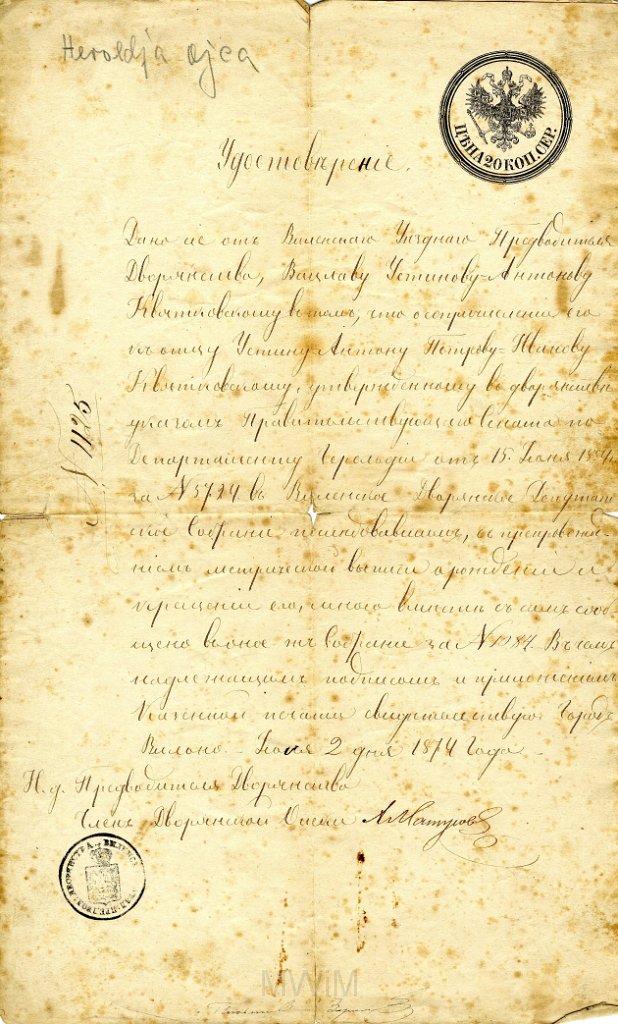 Heroldja ojca
ЦѢНА 20 КОП. СЕР.
Удостовѣреніе.
Дано сіе отъ Виленскаго Уѣзднаго Предводителя
Дворянства, Вацлаву Устинову-Антонову
Квятковскому въ томъ, что о сопричисленіи его
къ отцу Устину-Антону Петрову-Иванову
Квятковскому, утвержденному въ дворянствѣ
указомъ Правительствующаго Сената по
Департаменту Герольдіи отъ 15 Іюня
за № 5724 въ Виленское Дворянское Депутат
ское Собраніе послѣдовавшимъ, съ препровожде
ніемъ метрической выписи о рожденіи и
крещеніи его, мною вмѣстѣ съ симъ сооб
щено въ оное же Собраніе за № 1184. Въ чемъ
надлежащимъ подписомъ и приложеніемъ
Казенной печати свидѣтельствую. Городъ
Вильно. Іюля 2 дня 1874 года
№ 1125
И. д. Предводителя Дворянства
Членъ Дворянской Опеки
MWiM